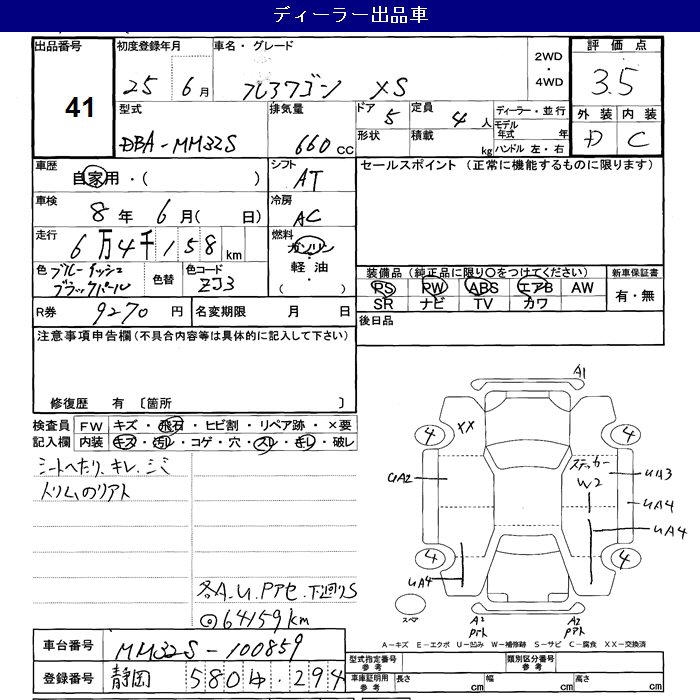 ディーラー出品車
出品番号 初度登録年月 車名・グレード 2WD・4WD 評価点
41 25 6月 フレアワゴン XS 3.5
型式 排気量 ドア 5 定員 4人 ディーラー・並行 外装 内装
DBA-MM32S 660cc 形状 積載 kg モデル年式 年 ハンドル 左・右 D C
車歴 自家用・( ) シフト AT セールスポイント (正常に機能するものに限ります)
車検 8年 6月( 日) 冷房 AC
走行 6万4千158km 燃料 ガソリン
軽油
( )
色 ブルーイッシュブラックパール 色替 色コード ZJ3
装備品 (純正品に限り○をつけてください) 新車保証書
RS RW ABS エアB AW 有・無
SR ナビ TV カワ
R券 9270円 名変期限 月 日 後日品
注意事項申告欄(不具合内容等は具体的に記入して下さい)
修復歴 有 〔箇所 〕
検査員 FW キズ・飛石・ヒビ割・リペア跡・×要
記入欄 内装 キズ・汚レ・コゲ・穴・スレ・キレ・破レ
シートへたり、キレ、シミ
トリムのリアト
各A.U.Pアセ.下廻りS
◎64159km
A1
4 XX 4
ステッカー
W2
UA2 UA3
UA4
UA4
4 4
UA4
スペア A2 Pアト A2 Pアト
A-キズ E-エクボ U-凹ミ W-補修跡 S-サビ C-腐食 XX-交換済
車台番号 MM32S-100859
型式指定番号 参考 類別区分番号 参考
登録番号 静岡 580 ゆ・294
車庫証明用 参考 長さ cm 幅 cm 高さ cm